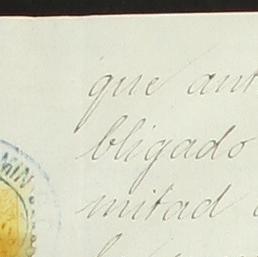 que ant
bligado
mitad
MIN